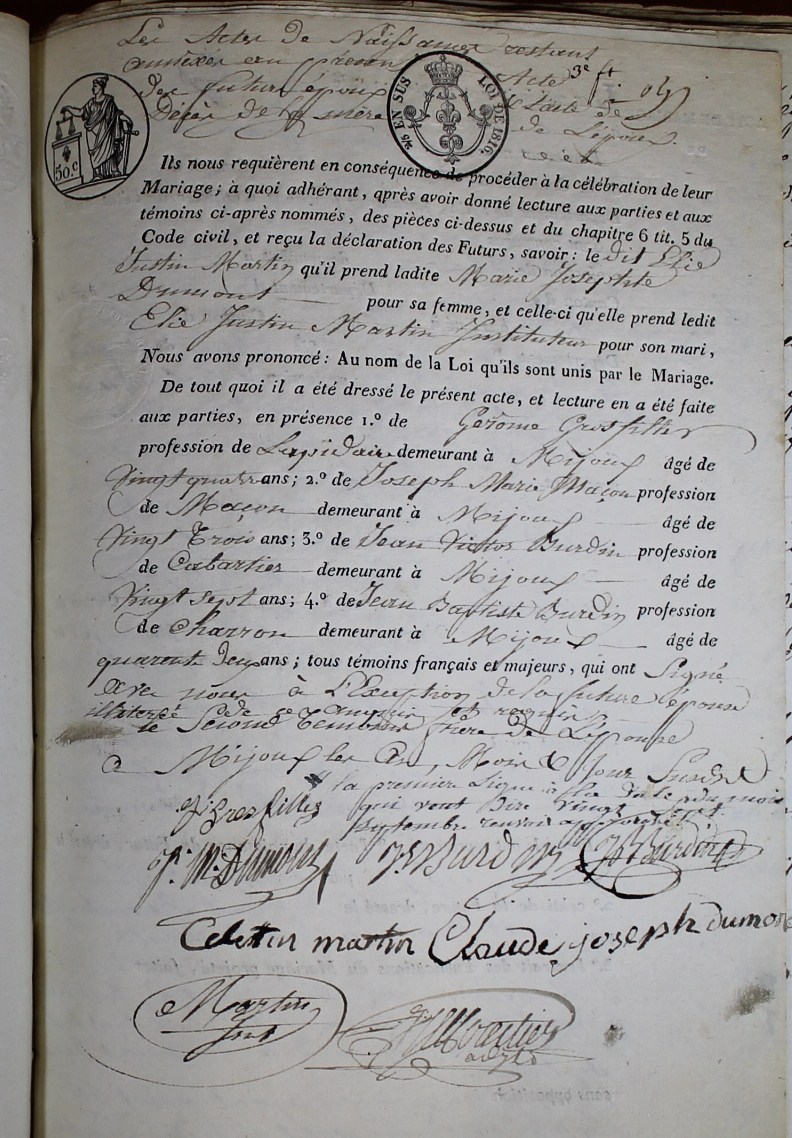 Les Actes de Naissance restant
annexés au présent Acte
des futurs époux
Décès de la mère de L'époux.
3e ft.
50.c
EN SUS LOI DE 1816.
Ils nous requièrent en conséquence de procéder à la célébration de leur
Mariage; à quoi adhérant, après avoir donné lecture aux parties et aux
témoins ci-après nommés, des pièces ci-dessus et du chapitre 6 tit. 5 du
Code civil, et reçu la déclaration des Futurs, savoir: le dit Elie
Justin Martin qu'il prend ladite Marie Josephte
Dumont pour sa femme, et celle-ci qu'elle prend ledit
Elie Justin Martin Instituteur pour son mari,
Nous avons prononcé: Au nom de la Loi qu'ils sont unis par le Mariage.
De tout quoi il a été dressé le présent acte, et lecture en a été faite
aux parties, en présence 1.° de Gerome Grosfillex
profession de Lapidaire demeurant à Mijoux âgé de
Vingt quatre ans; 2.° de Joseph Marie Maçon profession
de Maçon demeurant à Mijoux âgé de
Vingt Trois ans; 3.° de Jean Victor Burdin profession
de Cabartier demeurant à Mijoux âgé de
Vingt Sept ans; 4.° de Jean Baptiste Burdin profession
de Charron demeurant à Mijoux âgé de
quarente Deux ans; tous témoins français et majeurs, qui ont Signé
avec nous à L'Exception de la future Epouse
illiterée de ce requise
le Second temoin frère de L'Epouse
a Mijoux les An, Mois & Jour Susdit
la premiere Ligne à la date du mois
qui veut Dire Vingt Sept
Septembre renvoi approuvé
J. Grosfillex
J. M. Dumont JV Burdin JB Burdin
Celestin martin Claude joseph dumont
Martin
Just